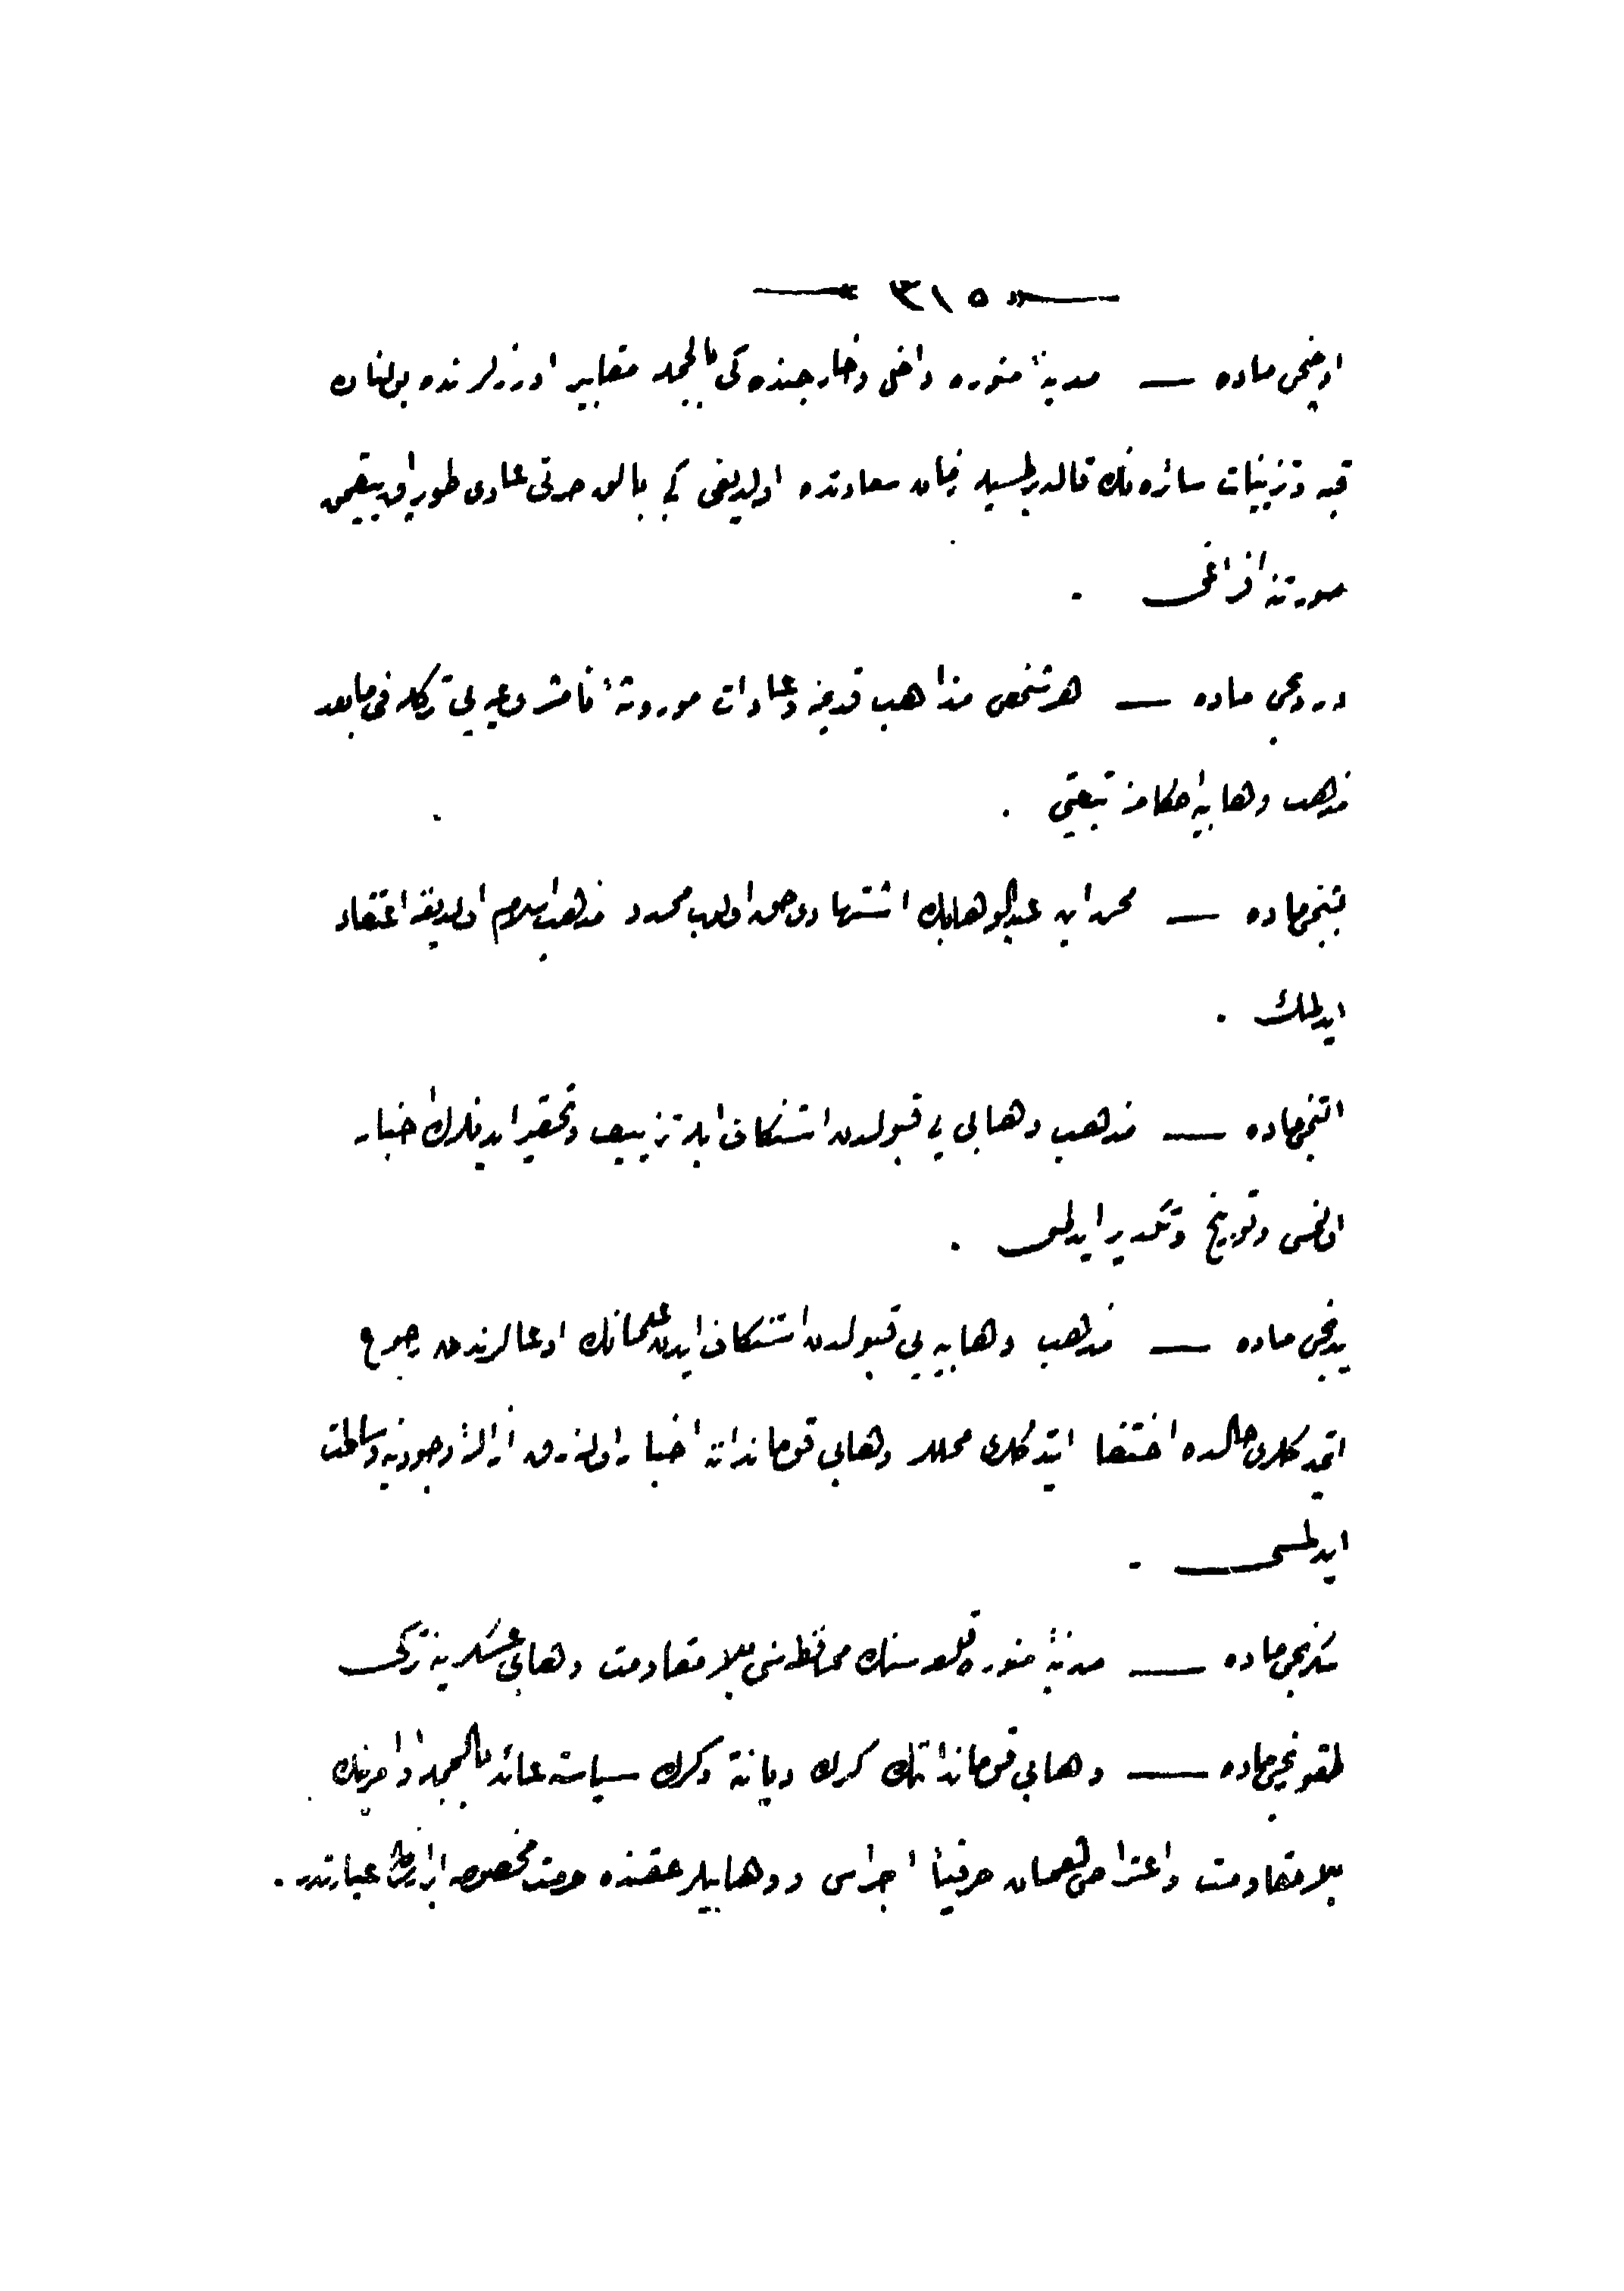 — ٣١٥ —
اوچنجی ماده — مدینهٔ منوره داخل و خارجنده کی بالجمله مقابر اوزرلرنده بولنان
قبه و تزیینات سائره نك قالدیرلمسیله زمان سعادتده اولدیغی کبی بالق صرتی عادی طوپراق ییغمه
صورتنه افراغی .
دردنجی ماده — هر شخص مذاهب قدیمه و عادات موروثهٔ نامشروعه یی ترکله فیما بعد
مذهب وهابیه احکامنه تبعیتی .
بشنجی ماده — محمد ابن عبدالوهابك اجتهادی حق اولوب مجدد مذهب اسلام اولدیغنه اعتقاد
ایدلمك .
التنجی ماده — مذهب وهابی یی قبولدن استنکاف ایله تزییف و تحقیر ایدنلرك اخبار
اولنمسی و توبیخ و تکدیر ایدلمسی .
یدنجی ماده — مذهب وهابیه یی قبولدن استنکاف ایدن علمانك ادعالرندن رجوع
ایتمدکلری حالده اختفا ایتدکلری محللر وهابی قوماندانه اخبار اولنه رق ازالهٔ وجودینه وساطت
ایدلمسی .
سکزنجی ماده — مدینهٔ منوره قلعه سنك محافظه سنی بلا مقاومت وهابی عسکرینه ترکی
طقوزنجی ماده — وهابی قوماندانك كرك دیانة و كرك سیاسة عائد بالجمله اوامرینك
بلا مقاومت و اعتراض همان حرفیا اجراسی و وهابیلر حقنده حرمت مخصوصه ابرازی عبارتدر .